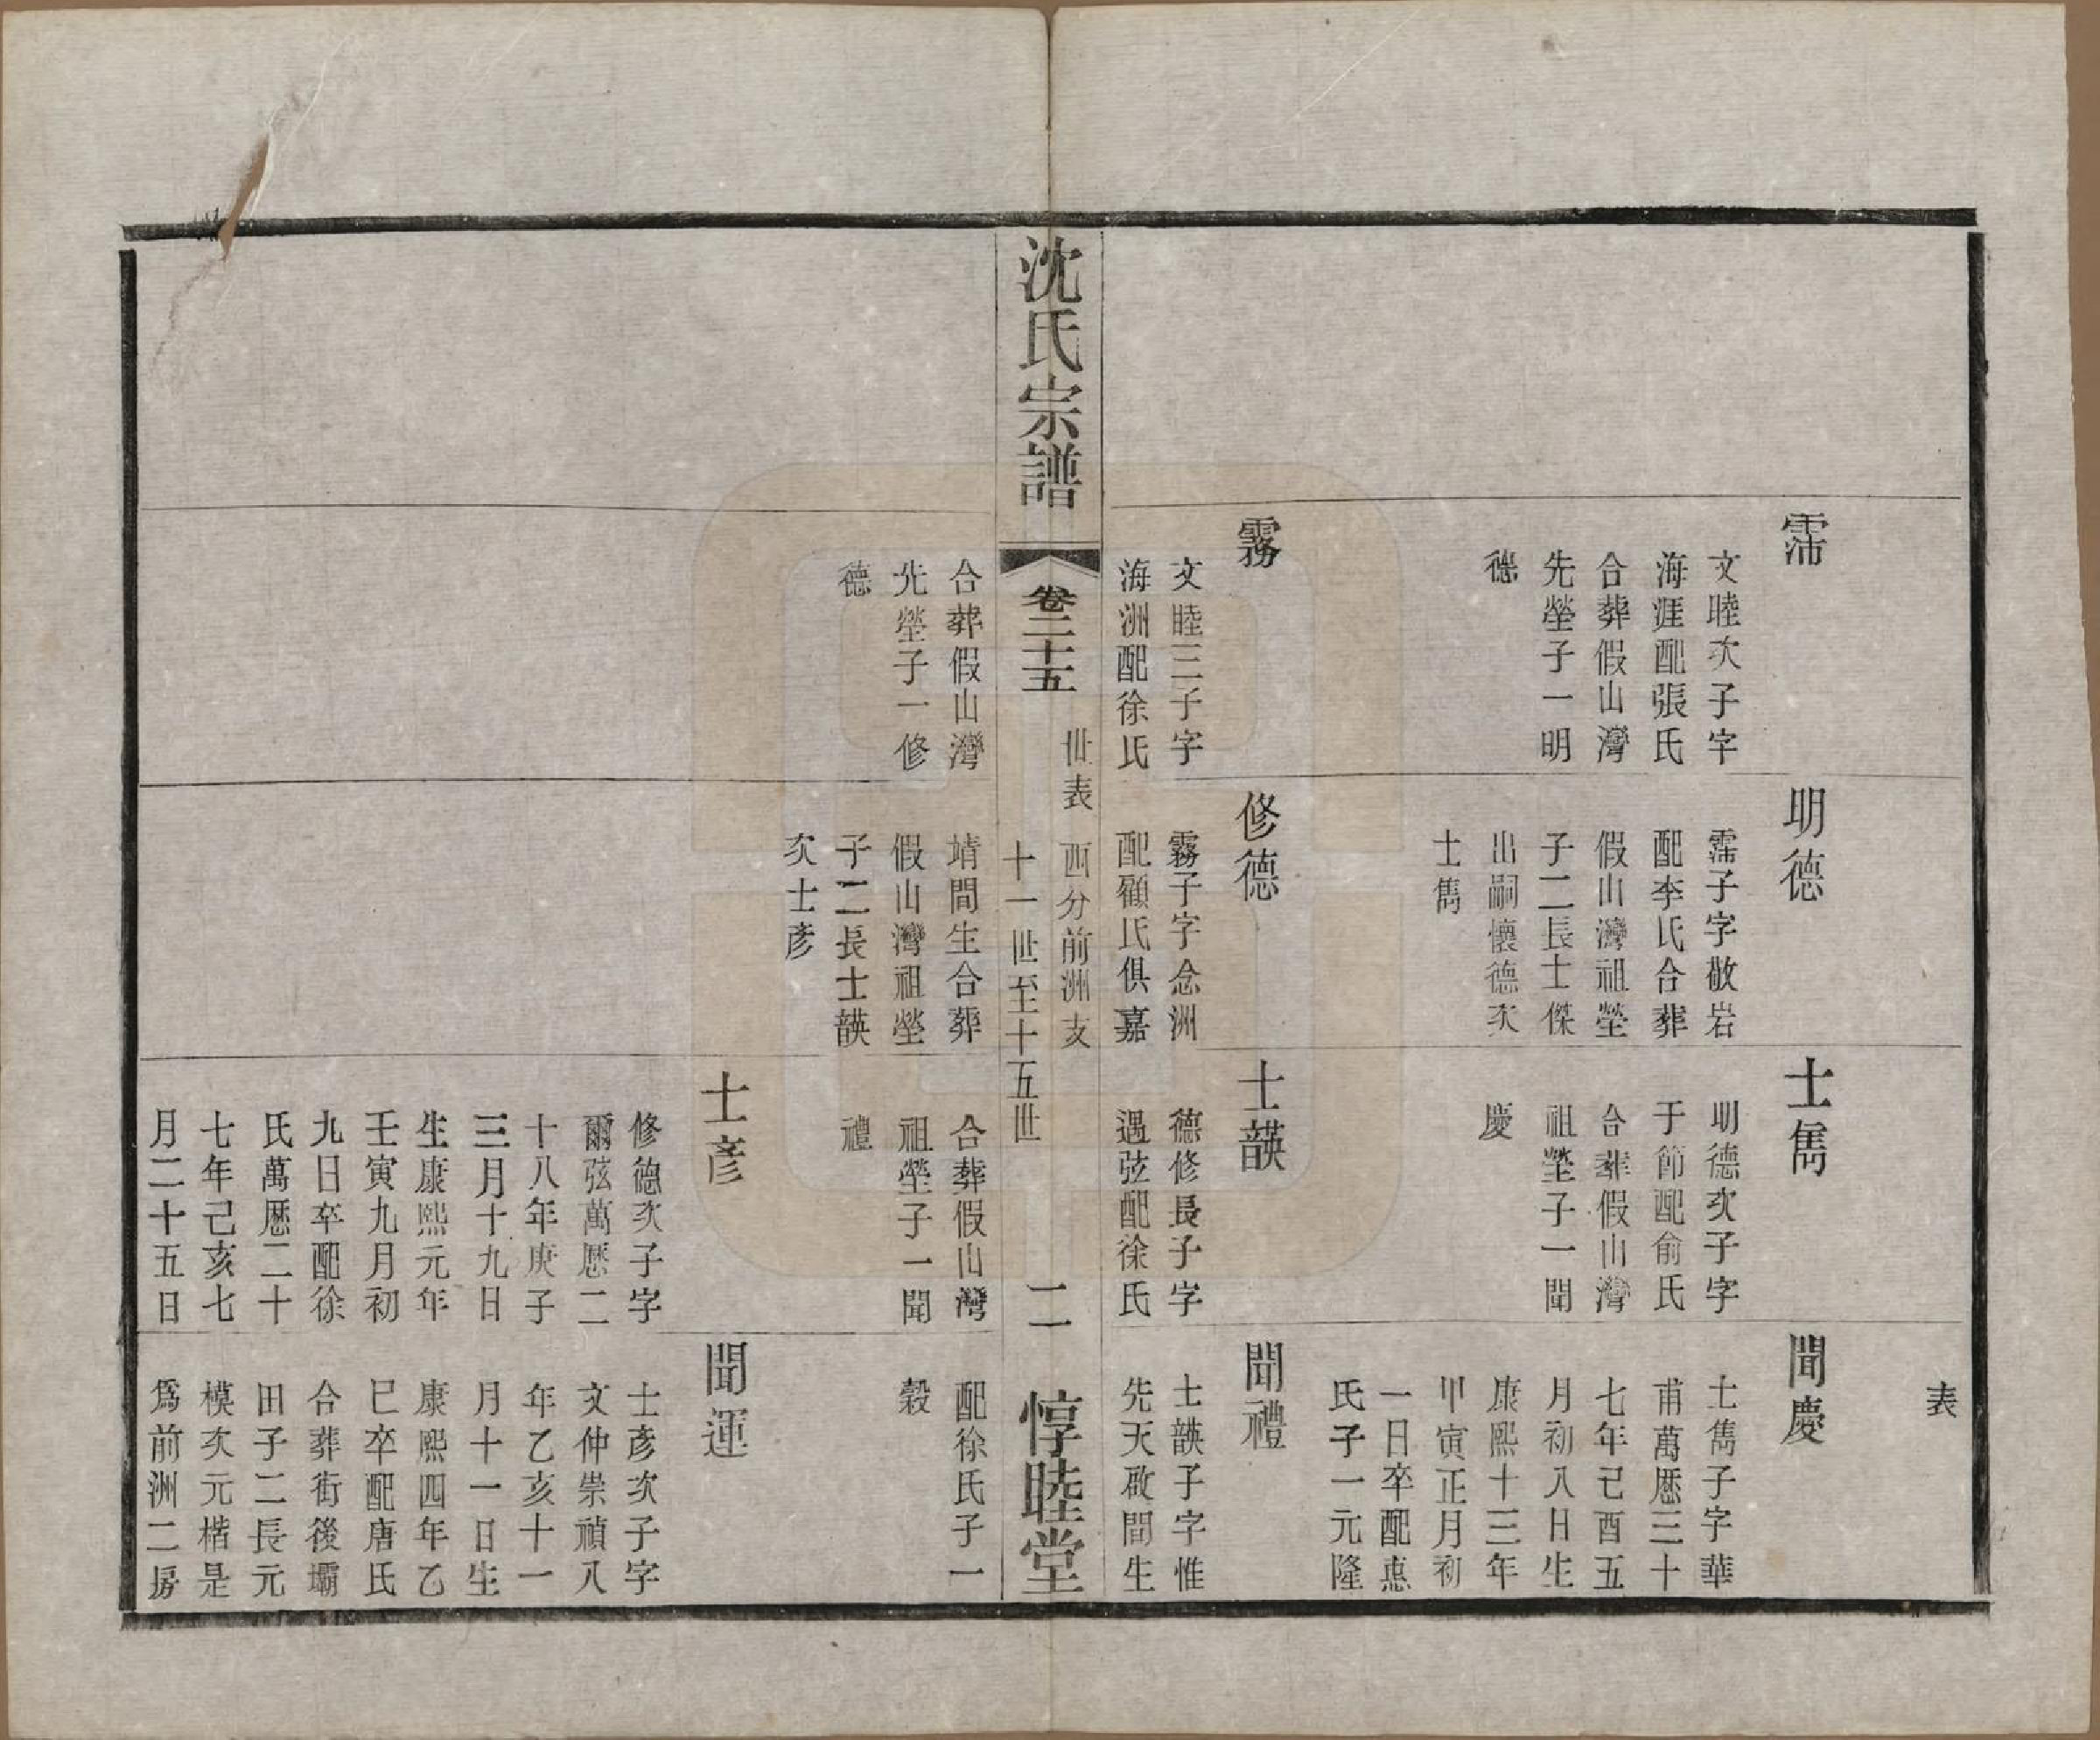 表
霈
文睦次子字
海涯配張氏
合葬假山灣
先塋子一明
德
明德
霈子字敬岩
配李氏合葬
假山灣祖塋
子二長士傑
出嗣懷德次
士雋
士雋
明德次子字
于節配俞氏
合葬假山灣
祖塋子一聞
慶
聞慶
士雋子字華
甫萬厯三十
七年己酉五
月初八日生
康熙十三年
甲寅正月初
一日卒配惠
氏子一元隆
霧
文睦三子字
海洲配徐氏
合葬假山灣
先塋子一修
德
修德
霧子字念洲
配顧氏俱嘉
靖間生合葬
假山灣祖塋
子二長士韺
次士彥
士韺
德修長子字
遇弦配徐氏
合葬假山灣
祖塋子一聞
禮
聞禮
士韺子字惟
先天啟間生
配徐氏子一
穀
沈氏宗譜
卷二十五
世表
西分前洲支
十一世至十五世
二
惇睦堂
士彥
修德次子字
爾弦萬厯二
十八年庚子
三月十九日
生康熙元年
壬寅九月初
九日卒配徐
氏萬厯二十
七年己亥七
月二十五日
聞運
士彥次子字
文仲崇禎八
年乙亥十一
月十一日生
康熙四年乙
巳卒配唐氏
合葬街後壩
田子二長元
模次元楷是
爲前洲二房